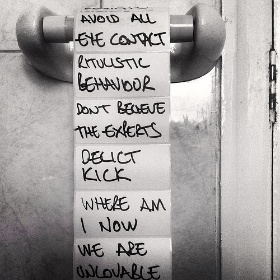 AVOID ALL
EYE CONTACT
RITULISTIC
BEHAVIOUR
DON'T BELIEVE
THE EXPERTS
DELICT
KICK
WHERE AM
I NOW
WE ARE
UNLOVABLE